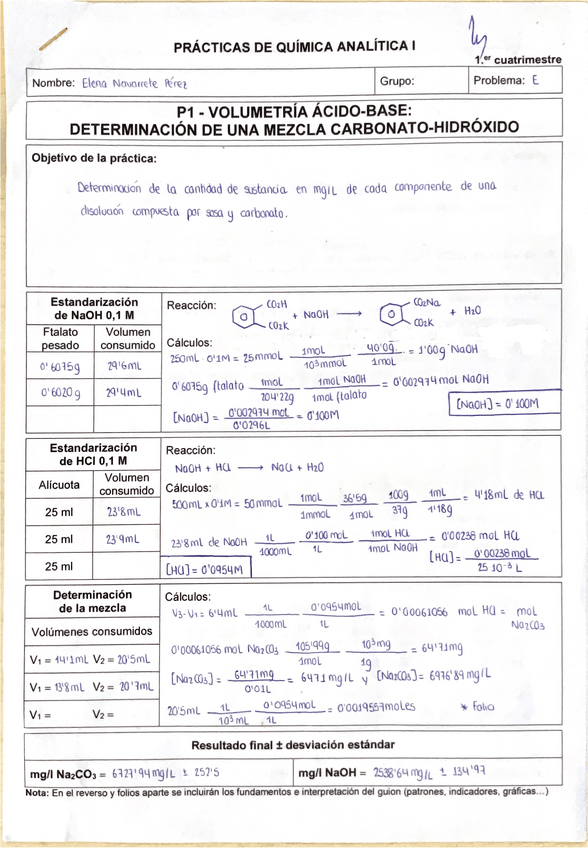 PRÁCTICAS DE QUÍMICA ANALÍTICA I
1.er cuatrimestre
Nombre: Elena Navarrete Pérez
Grupo:
Problema: E
P1 - VOLUMETRÍA ÁCIDO-BASE:
DETERMINACIÓN DE UNA MEZCLA CARBONATO-HIDRÓXIDO
Objetivo de la práctica:
Determinación de la cantidad de sustancia en mg/L de cada componente de una
disolución compuesta por sosa y carbonato.
Estandarización
de NaOH 0,1 M
Ftalato pesado
Volumen consumido
0'6075g 29'6mL
0'6020g 29'4mL
Reacción:
CO2H CO2K + NaOH ⟶ CO2Na CO2K + H2O
Cálculos:
250mL · 0'1M = 25mmol 1mol/10³mmol 40'0g/1mol = 1'00g NaOH
0'6075g ftalato 1mol/204'22g 1mol NaOH/1mol ftalato = 0'002974 mol NaOH
[NaOH] = 0'002974 mol/0'0296L = 0'100M
[NaOH] = 0'100M
Estandarización
de HCl 0,1 M
Alícuota
Volumen consumido
25 ml 23'8mL
25 ml 23'9mL
25 ml
Reacción:
NaOH + HCl ⟶ NaCl + H2O
Cálculos:
500mL x 0'1M = 50mmol 1mol/1mmol 36'5g/1mol 100g/37g 1mL/1'18g = 4'18mL de HCl
23'8mL de NaOH 1L/1000mL 0'100mol/1L 1mol HCl/1mol NaOH = 0'00238 mol HCl
[HCl] = 0'0954M
[HCl] = 0'00238mol/25 10⁻³ L
Determinación
de la mezcla
Volúmenes consumidos
V1 = 14'1mL V2 = 20'5mL
V1 = 13'8mL V2 = 20'7mL
V1 = V2 =
Cálculos:
V2-V1 = 6'4mL 1L/1000mL 0'0954mol/1L = 0'00061056 mol HCl = mol Na2CO3
0'00061056 mol Na2CO3 105'99g/1mol 10³mg/1g = 64'71mg
[Na2CO3] = 64'71mg/0'01L = 6471mg/L y [Na2CO3] = 6976'89mg/L
20'5mL 1L/10³mL 0'0954mol/1L = 0'0019557moles * Folio
Resultado final ± desviación estándar
mg/l Na2CO3 = 6723'94mg/L ± 252'5
mg/l NaOH = 2538'64mg/L ± 134'97
Nota: En el reverso y folios aparte se incluirán los fundamentos e interpretación del guion (patrones, indicadores, gráficas...)